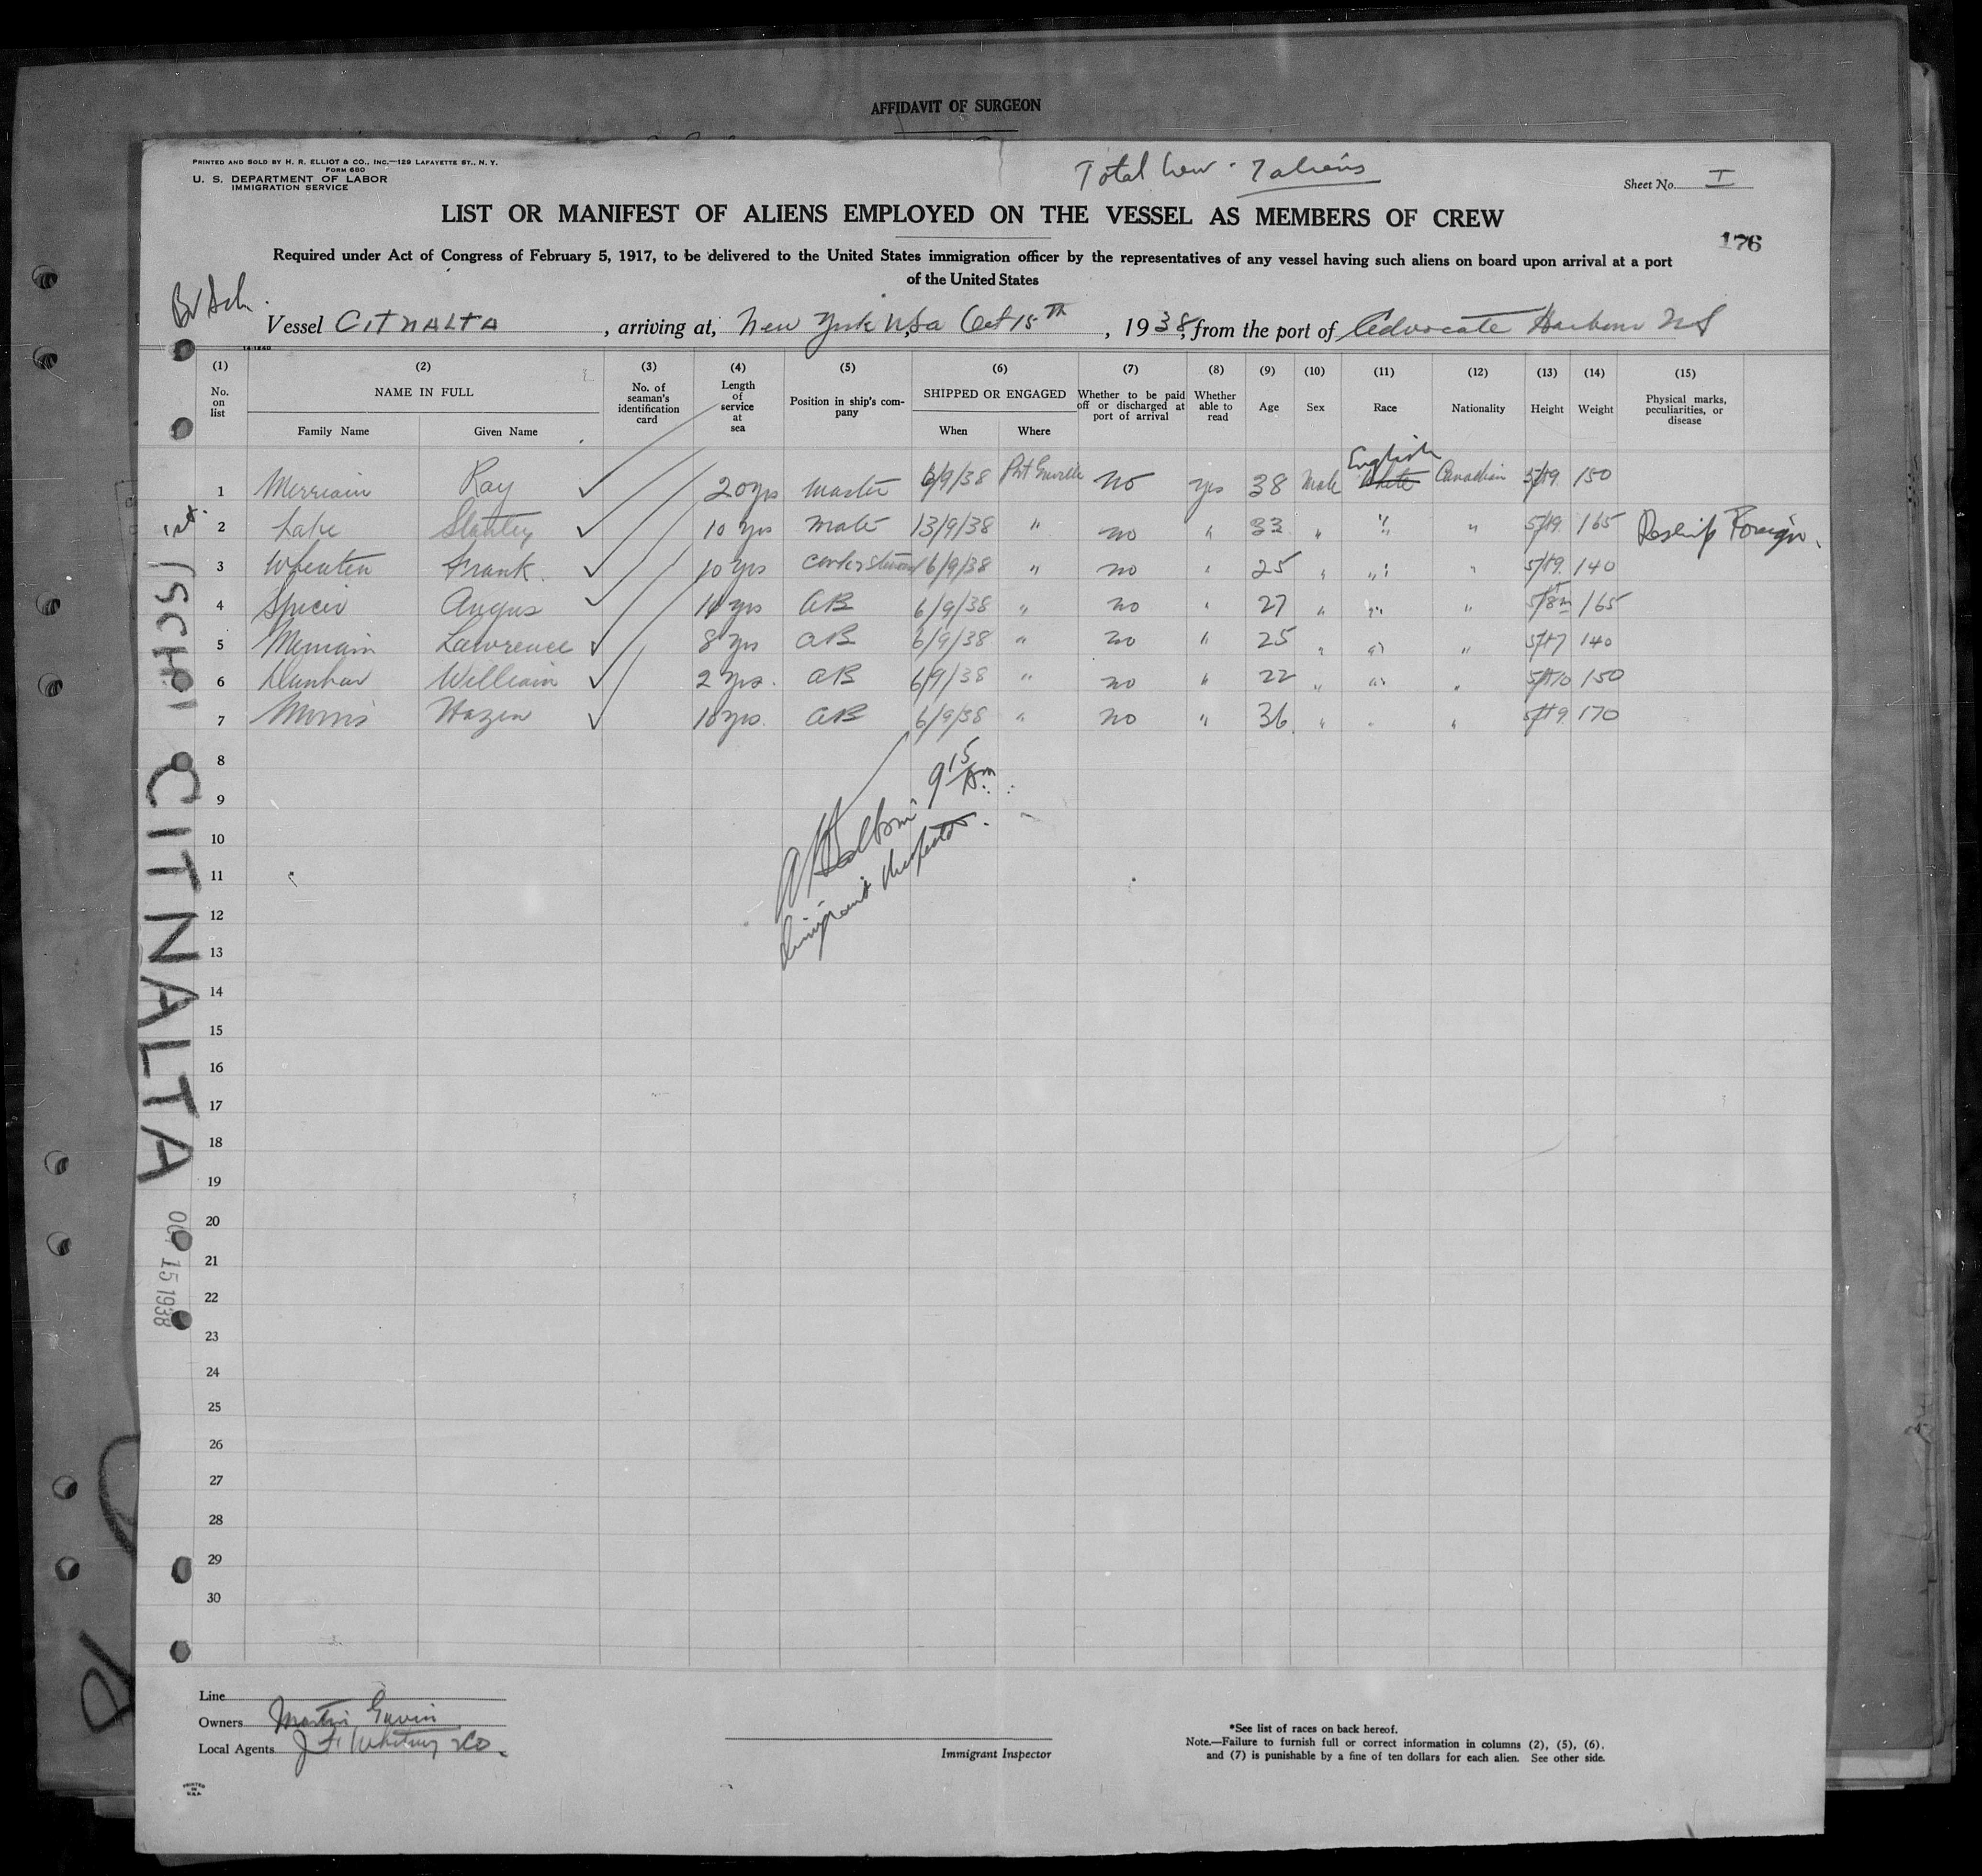 AFFIDAVIT OF SURGEON
PRINTED AND SOLD BY H. R. ELLIOT & CO., INC.—129 LAFAYETTE ST., N. Y.
FORM 680
U. S. DEPARTMENT OF LABOR
IMMIGRATION SERVICE
Total Crew 7 aliens
Sheet No. I
LIST OR MANIFEST OF ALIENS EMPLOYED ON THE VESSEL AS MEMBERS OF CREW
176
Required under Act of Congress of February 5, 1917, to be delivered to the United States immigration officer by the representatives of any vessel having such aliens on board upon arrival at a port
of the United States
Br Sch.
Vessel CITNALTA, arriving at, New York USa Oct 15th, 1938, from the port of Advocate Harbour NS
14-1240
(1) (2) (3) (4) (5) (6) (7) (8) (9) (10) (11) (12) (13) (14) (15)
No. on list
NAME IN FULL
Family Name Given Name
No. of seaman's identification card
Length of service at sea
Position in ship's company
SHIPPED OR ENGAGED
When Where
Whether to be paid off or discharged at port of arrival
Whether able to read
Age Sex Race Nationality Height Weight
Physical marks, peculiarities, or disease
English
1 Merriam Ray ✓ 20 yrs Master 6/9/38 Port Greville No yes 38 Male White Canadian 5ft9 150
1st. 2 Lake Stanley ✓ 10 yrs mate 13/9/38 " no " 33 " " " 5ft9 165 Reship Foreign.
3 Wheaten Frank ✓ 10 yrs 6/9/38 " no " 25 " " " 5ft9 140
4 Spicer Angus ✓ yrs AB 6/9/38 " no " 27 " " " 165
5 Merriam Lawrence ✓ 8 yrs AB 6/9/38 " no " 25 " " " 5ft7 140
6 Dunbar William ✓ 2 yrs. AB 6/9/38 " no " 22 " " " 5ft10 150
7 Morris Hazen ✓ 10 yrs. AB 6/9/38 " no " 36 " " " 5ft9 170
9 15 Am
Immigrant Inspector.
8
9
10
11
12
13
14
15
16
17
18
19
20
21
22
23
24
25
26
27
28
29
30
(SCH) CITNALTA
OCT 15 1938
Line
Owners Martin Gavin
Local Agents J. F. Whitney & Co.
Immigrant Inspector
*See list of races on back hereof.
Note.—Failure to furnish full or correct information in columns (2), (5), (6).
and (7) is punishable by a fine of ten dollars for each alien. See other side.
PRINTED
IN
U.S.A.